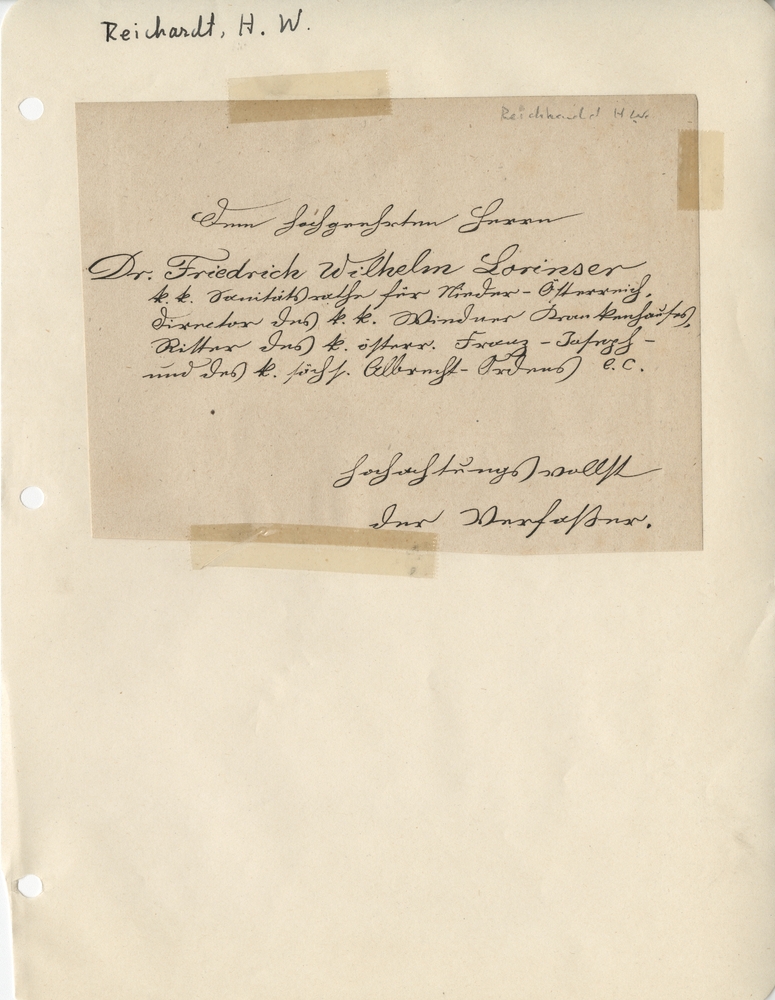 Reichardt, H. W.
Reichhardt H W.
Dem hochgeehrten Herrn
Dr. Friedrich Wilhelm Lorinser
k. k. Sanitätsrathe für Nieder-Österreich,
Director des k. k. Wiedner Krankenhauses,
Ritter des k. österr. Franz-Joseph-
und des k. sächs. Albrecht-Ordens e.c.
hochachtungsvollst
der Verfaßer.